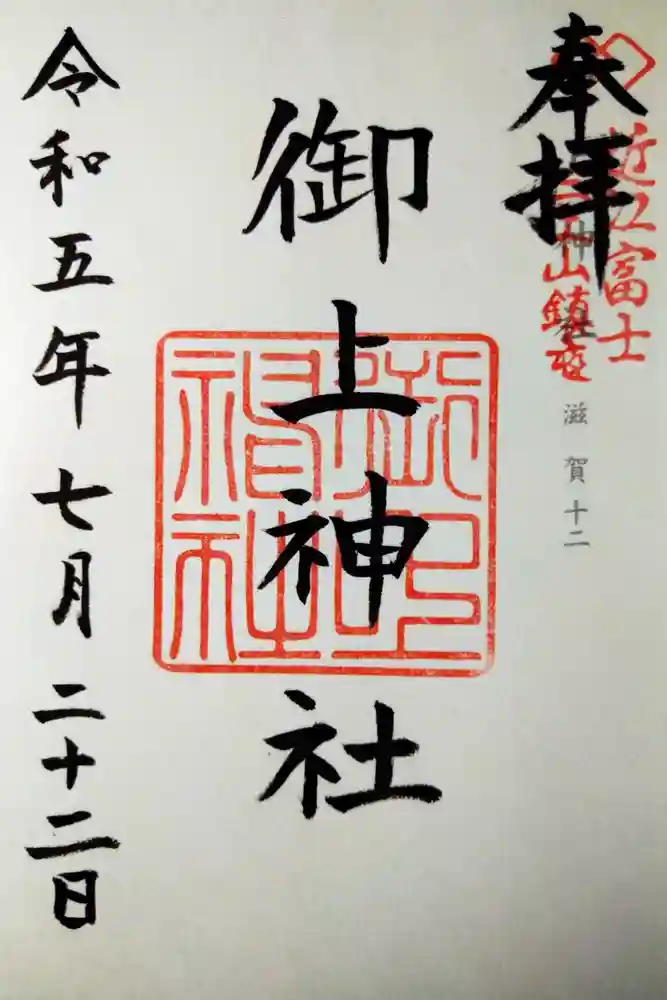 奉拝
近江富士
三上山鎮座
神社
滋賀十二
御上神社
御上神社
令和五年七月二十二日